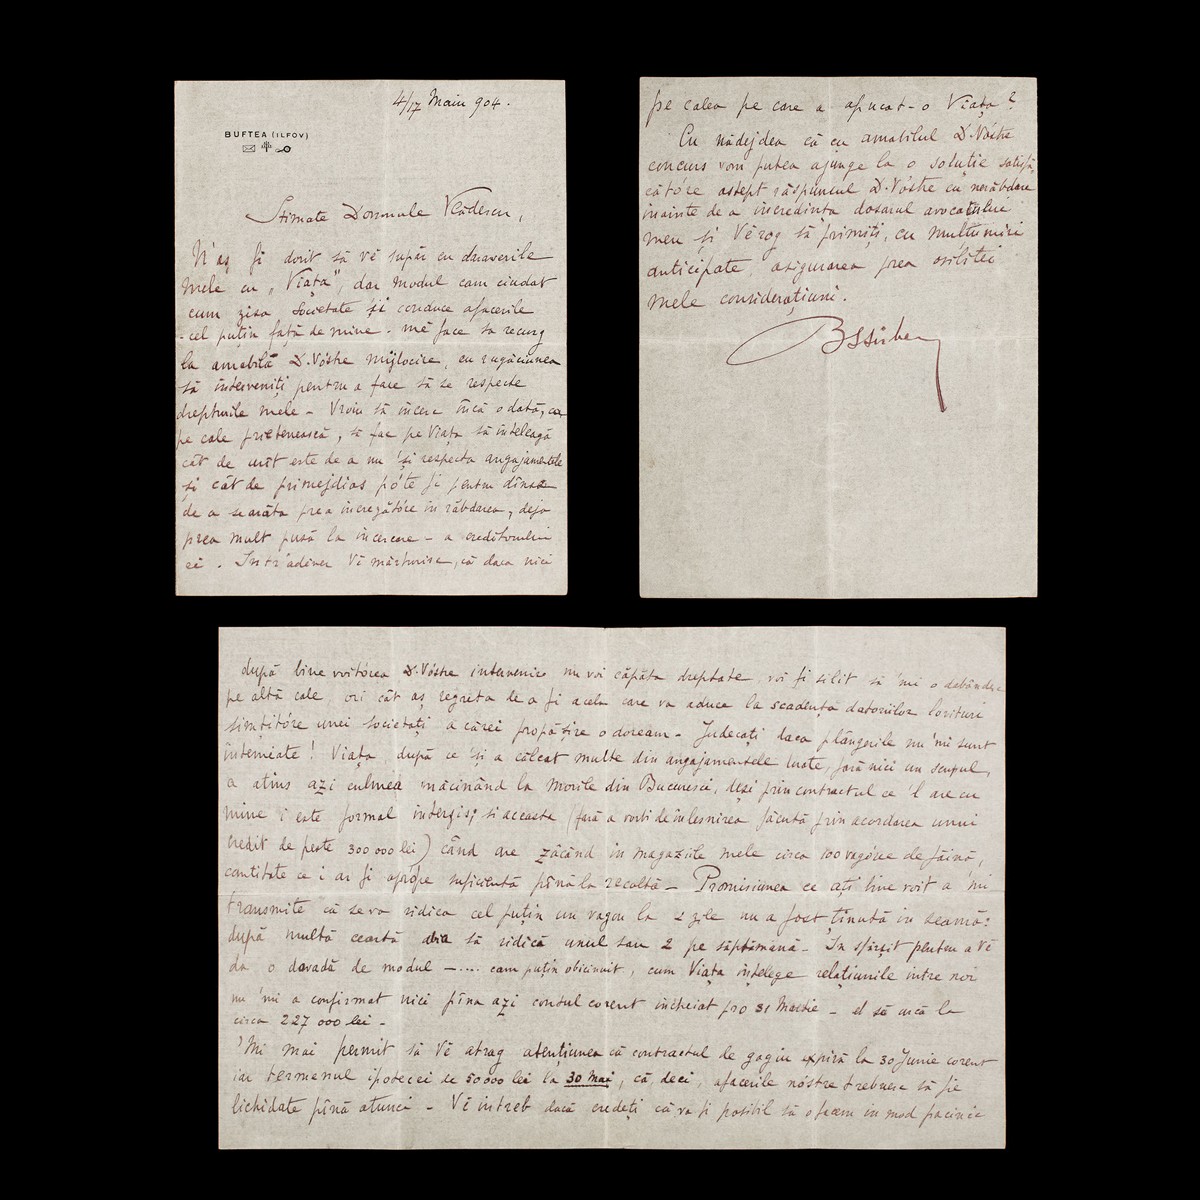 4/17 Maiu 904.
BUFTEA (ILFOV)
Stimate Domnule Vlădescu,
N'aș fi dorit să vĕ supăr cu daraverile
mele cu „Viața", dar modul cam ciudat
cum zisa Societate își conduce afacerile
- cel puțin față de mine - mĕ face sa recurg
la amabila D.Vóstre mijlocire, cu rugăciunea
să interveniți pentru a face să se respecte
drepturile mele - Vroiu să încerc încă odată, ca
pe cale prietenească, să fac pe Viața să înțeleagă
cât de urît este de a nu 'și respecta angajamentele
și cât de primejdios póte fi pentru dînsa
de a se arăta prea încregătóre in răbdarea, deja
prea mult pusă la încercare - a creditorului
ei. Intr'adever Vĕ mărturisesc, că daca nici
după bine voitórea D.Vóstre intervenire nu voi căpăta dreptate, voi fi silit să 'mi o dobândesc
pe altă cale, ori cât aș regreta de a fi acela care va aduce la scadența datoriilor lovituri
simțitóre unei societați a cărei propășire o doream - Judecați daca plângerile nu 'mi sunt
întemiate! Viața, după ce 'și a călcat multe din angajamentele luate, fară nici un scrupul,
a atins azi culmea măcinând la morile din Bucuresci, deși prin contractul ce 'l are cu
mine i este formal interzis; si aceasta (fară a vorbi de înlesnirea făcută prin acordarea unui
credit de peste 300 000 lei) când are zăcând in magaziile mele circa 100 vagóne de făină,
cantitate ce i ar fi aprópe suficientă pînă la recoltă - Promisiunea ce ați bine voit a 'mi
transmite că se va ridica cel puțin un vagon la 2 zile nu a fost ținută in seamă:
după multă ceartă abia să ridică unul sau 2 pe săptămână - In sfârșit pentru a Vĕ
da o dovadă de modul - .... cam puțin obicinuit, cum Viața înțelege relațiunile intre noi
nu 'mi a confirmat nici pîna azi contul corent încheiat pro 31 Martie - el să urcă la
circa 227 000 lei -
'Mi mai permit să Vĕ atrag atențiunea că contractul de gagiu expiră la 30 Junie corent
iar termenul ipotecei de 50 000 lei la 30 Mai, că, deci, afacerile nóstre trebuesc să fie
lichidate pînă atunci - Vĕ intreb dacă credeți că va fi posibil să o facem in mod pacinic
pe calea pe care a apucat-o Viața?
Cu nădejdea că cu amabilul D.Vóstre
concurs vom putea ajunge la o soluție satisfă
cătóre astept răspunsul D.Vóstre cu nerăbdare
înainte de a incredința dosarul avocatului
meu și Vĕ rog să primiți, cu mulțumiri
anticipate, asigurarea prea osibitei
mele considerațiuni.
BSStirbey